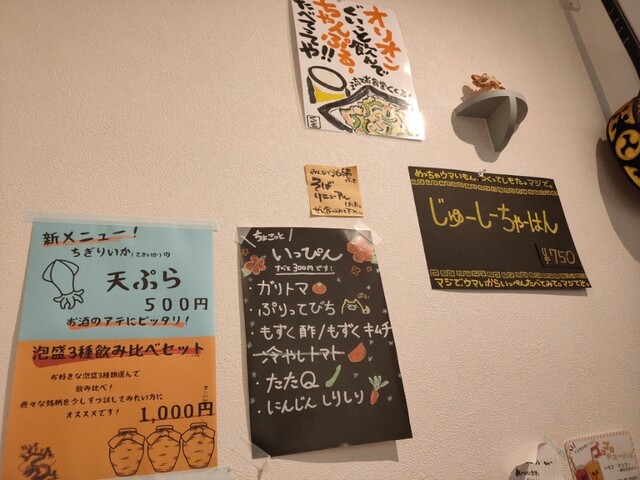 オリオン
ぐいっと飲んで
ちゃんぷるー
たべてってや!!
そば
リニューアル
めっちゃウマいもん、つくってしもた。マジで。
じゅーしーちゃーはん
¥750
マジでウマいからいっぺんたべてみて。マジで。
新メニュー!
ちぎりいか(小さいか)の
天ぷら
500円
お酒のアテにピッタリ!
泡盛3種飲み比べセット
お好きな泡盛3種類選んで
飲み比べ!
色々な銘柄を少しずつ試してみれい方に
オススメです!
1,000円
ちょこっと
いっぴん
すべて300円です!
ガリトマ
・ぷりってびち
・もずく酢/もずくキムチ
・冷やしトマト
・たたQ
・にんじんしりしり